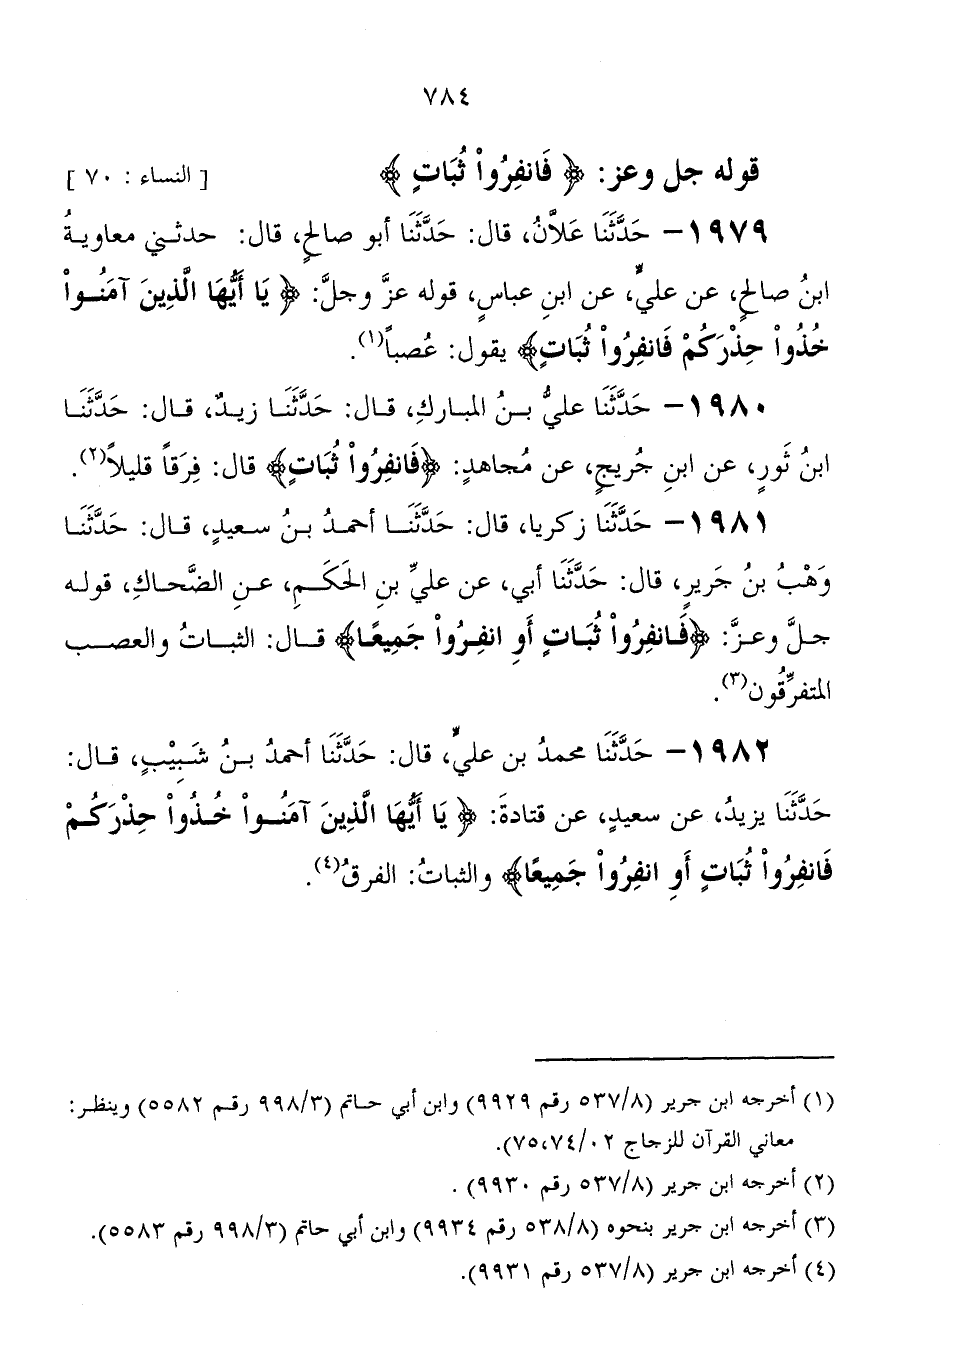 ٧٨٤
قوله جل وعز: ﴿ فَانفِرُواْ ثُبَاتٍ ﴾ [ النساء : ٧٠ ]
١٩٧٩- حَدَّثَنَا عَلاَّنُ، قال: حَدَّثَنَا أبو صالحٍ، قال: حدثني معاويةُ
ابنُ صالحٍ، عن عليٍّ، عن ابنِ عباسٍ، قوله عزَّ وجلَّ: ﴿ يَا أَيُّهَا الَّذِينَ آمَنُواْ
خُذُواْ حِذْرَكُمْ فَانفِرُواْ ثُبَاتٍ﴾ يقول: عُصباً(١).
١٩٨٠- حَدَّثَنَا عليُّ بنُ المباركِ، قال: حَدَّثَنَا زيدٌ، قال: حَدَّثَنَا
ابنُ ثَورٍ، عن ابنِ جُريجٍ، عن مُجاهدٍ: ﴿فَانفِرُواْ ثُبَاتٍ﴾ قال: فِرَقاً قليلاً(٢).
١٩٨١- حَدَّثَنَا زكريا، قال: حَدَّثَنَا أحمدُ بنُ سعيدٍ، قال: حَدَّثَنَا
وَهْبُ بنُ جَريرٍ، قال: حَدَّثَنَا أبي، عن عليِّ بنِ الحَكَمِ، عنِ الضَّحاكِ، قوله
جلَّ وعزَّ: ﴿فَانفِرُواْ ثُبَاتٍ أَوِ انفِرُواْ جَمِيعًا﴾ قال: الثباتُ والعصب
المتفرِّقُون(٣).
١٩٨٢- حَدَّثَنَا محمدُ بن عليٍّ، قال: حَدَّثَنَا أحمدُ بنُ شَبِيْبٍ، قال:
حَدَّثَنَا يزيدُ، عن سعيدٍ، عن قتادةَ: ﴿ يَا أَيُّهَا الَّذِينَ آمَنُواْ خُذُواْ حِذْرَكُمْ
فَانفِرُواْ ثُبَاتٍ أَوِ انفِرُواْ جَمِيعًا﴾ والثباتُ: الفرقُ(٤).
(١) أخرجه ابن جرير (٥٣٧/٨ رقم ٩٩٢٩) وابن أبي حاتم (٩٩٨/٣ رقم ٥٥٨٢) وينظر:
معاني القرآن للزجاج ٧٥،٧٤/٠٢).
(٢) أخرجه ابن جرير (٥٣٧/٨ رقم ٩٩٣٠) .
(٣) أخرجه ابن جرير بنحوه (٥٣٨/٨ رقم ٩٩٣٤) وابن أبي حاتم (٩٩٨/٣ رقم ٥٥٨٣).
(٤) أخرجه ابن جرير (٥٣٧/٨ رقم ٩٩٣١).